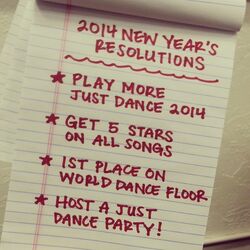 2014 NEW YEAR'S
RESOLUTIONS
★ PLAY MORE
JUST DANCE 2014
★ GET 5 STARS
ON ALL SONGS
★ 1ST PLACE ON
WORLD DANCE FLOOR
★ HOST A JUST
DANCE PARTY!